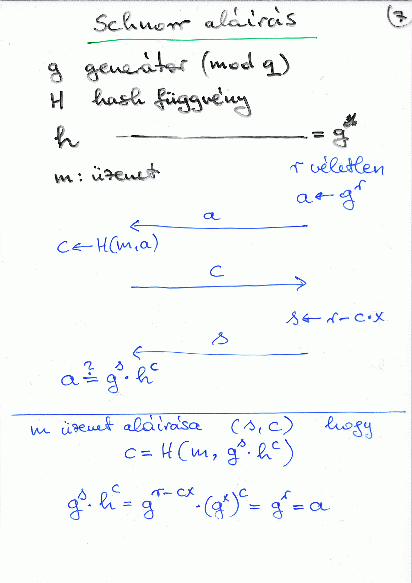 Schnorr aláírás
7
g generátor (mod q)
H hash függvény
h = g^x
m: üzenet
r véletlen
a ← g^r
a
c ← H(m,a)
c
s ← r - c·x
s
a ≟ g^s · h^c
m üzenet aláírása (s, c) hogy
c = H(m, g^s · h^c)
g^s · h^c = g^{r-cx} · (g^x)^c = g^r = a